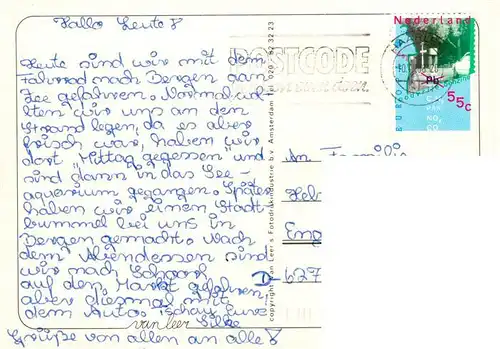 Hallo Leute!
Heute sind wir mit dem
Fahrrad nach Bergen aan
Zee gefahren. Normal woll-
ten wir uns an dem
Strand legen, da es aber
frisch war, haben wir
dort Mittag gegessen und
sind dann in das See-
aquarium gegangen. Später
haben wir einen Stadt-
bummel bei uns in
Bergen gemacht. Nach
dem Abendessen sind
wir nach Schoorl
auf den Markt gefahren,
aber diesmal mit
dem Auto.
Silke
Grüße von allen an alle!
van leer
copyright van Leer's Fotodrukindustrie b.v. Amsterdam tel. 020 - 82 32 23
POSTCODE
Nederland
55c
An Familie
Heb
Eng
D-627